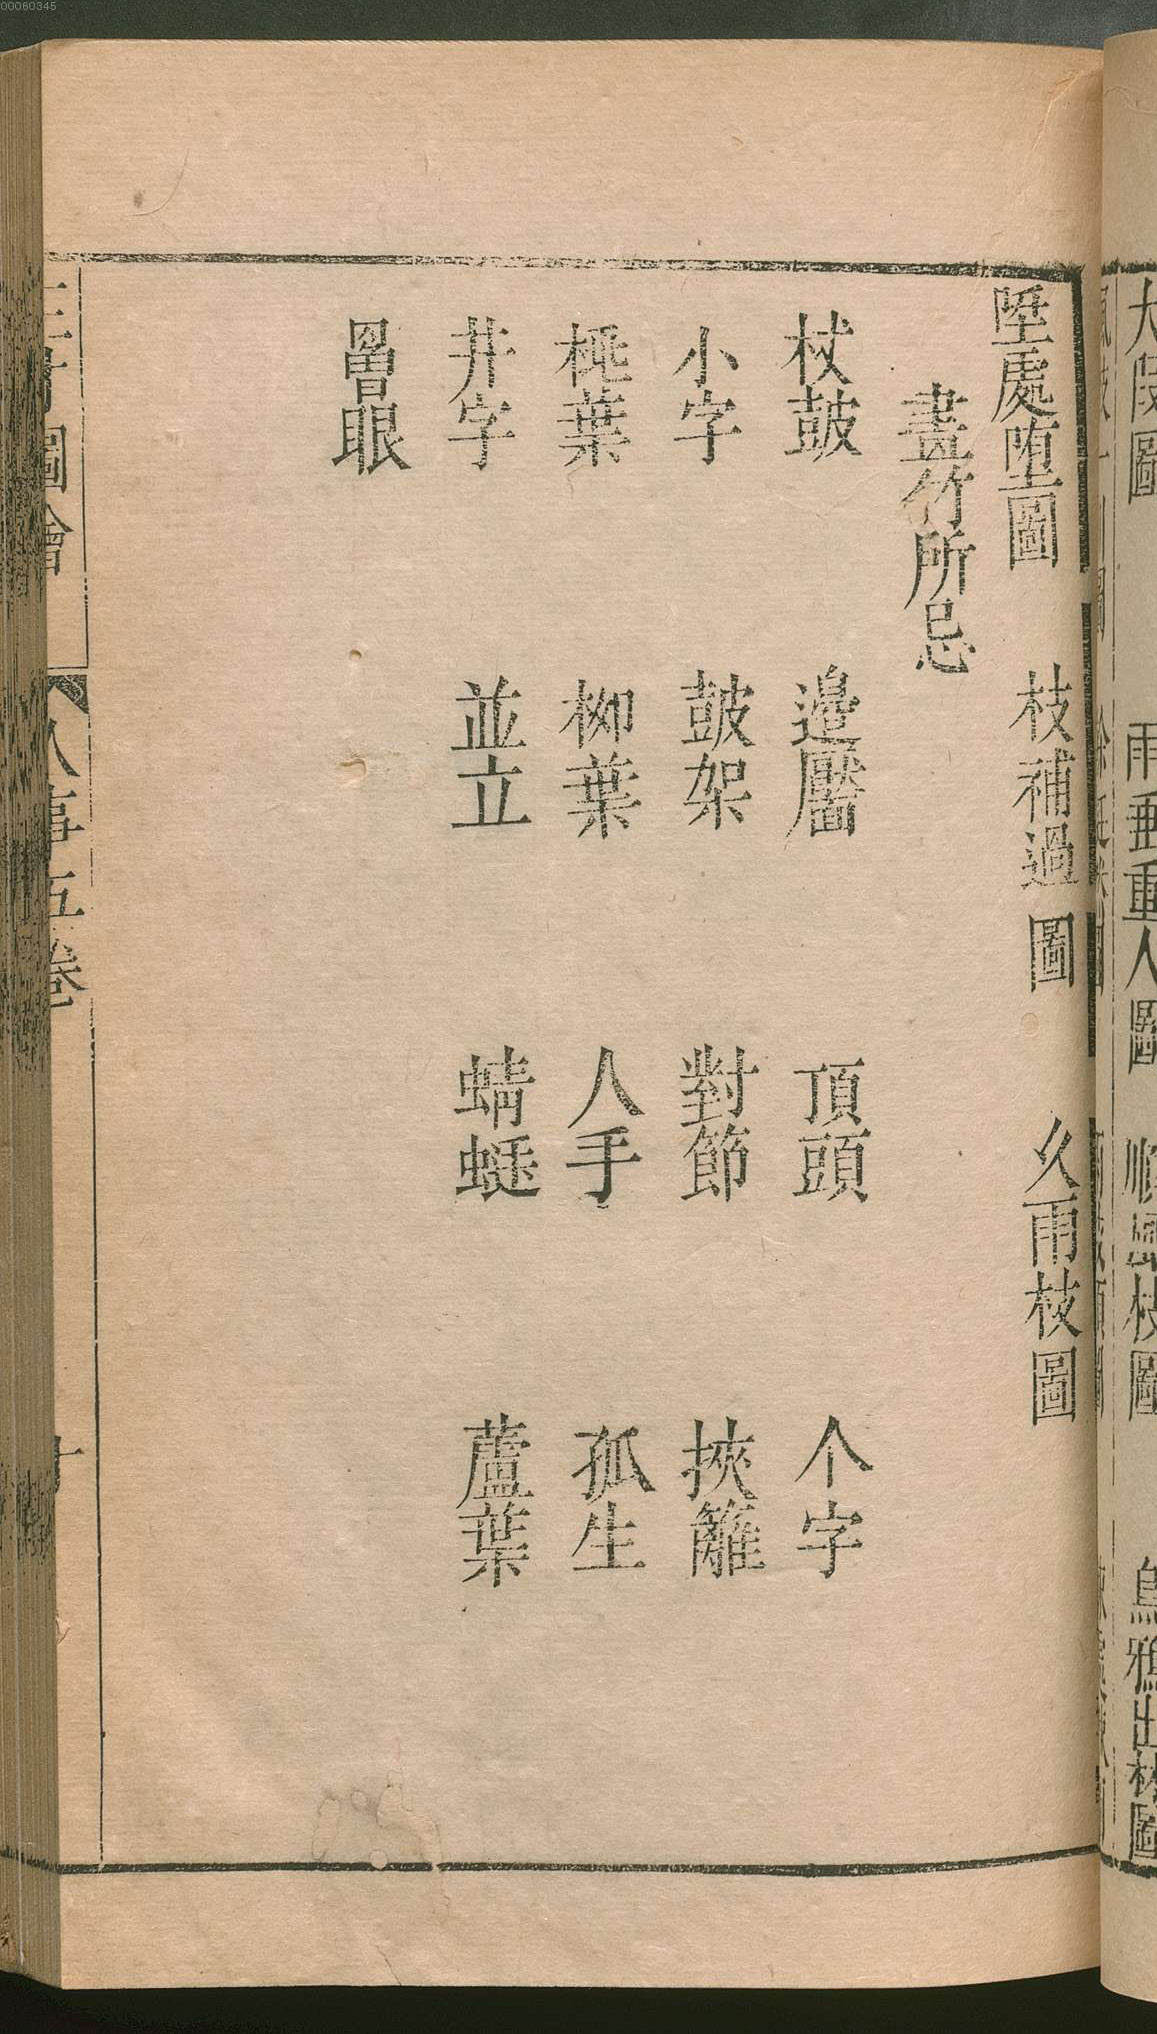 大段圖 雨垂重人圖 順風枝圖 烏鴉出林圖
陞處堕圖 枝補過圖 久雨枝圖
畫竹所忌
杖鼓 邊壓 頂頭 个字
小字 鼓架 對節 挾籬
桃葉 柳葉 人手 孤生
井字 並立 蜻蜓 蘆葉
罾眼
三才圖會 人事五卷
00060345